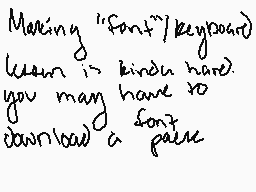 Making "font"/keyboard
lesson is kinda hard.
you may have to
download a font pack